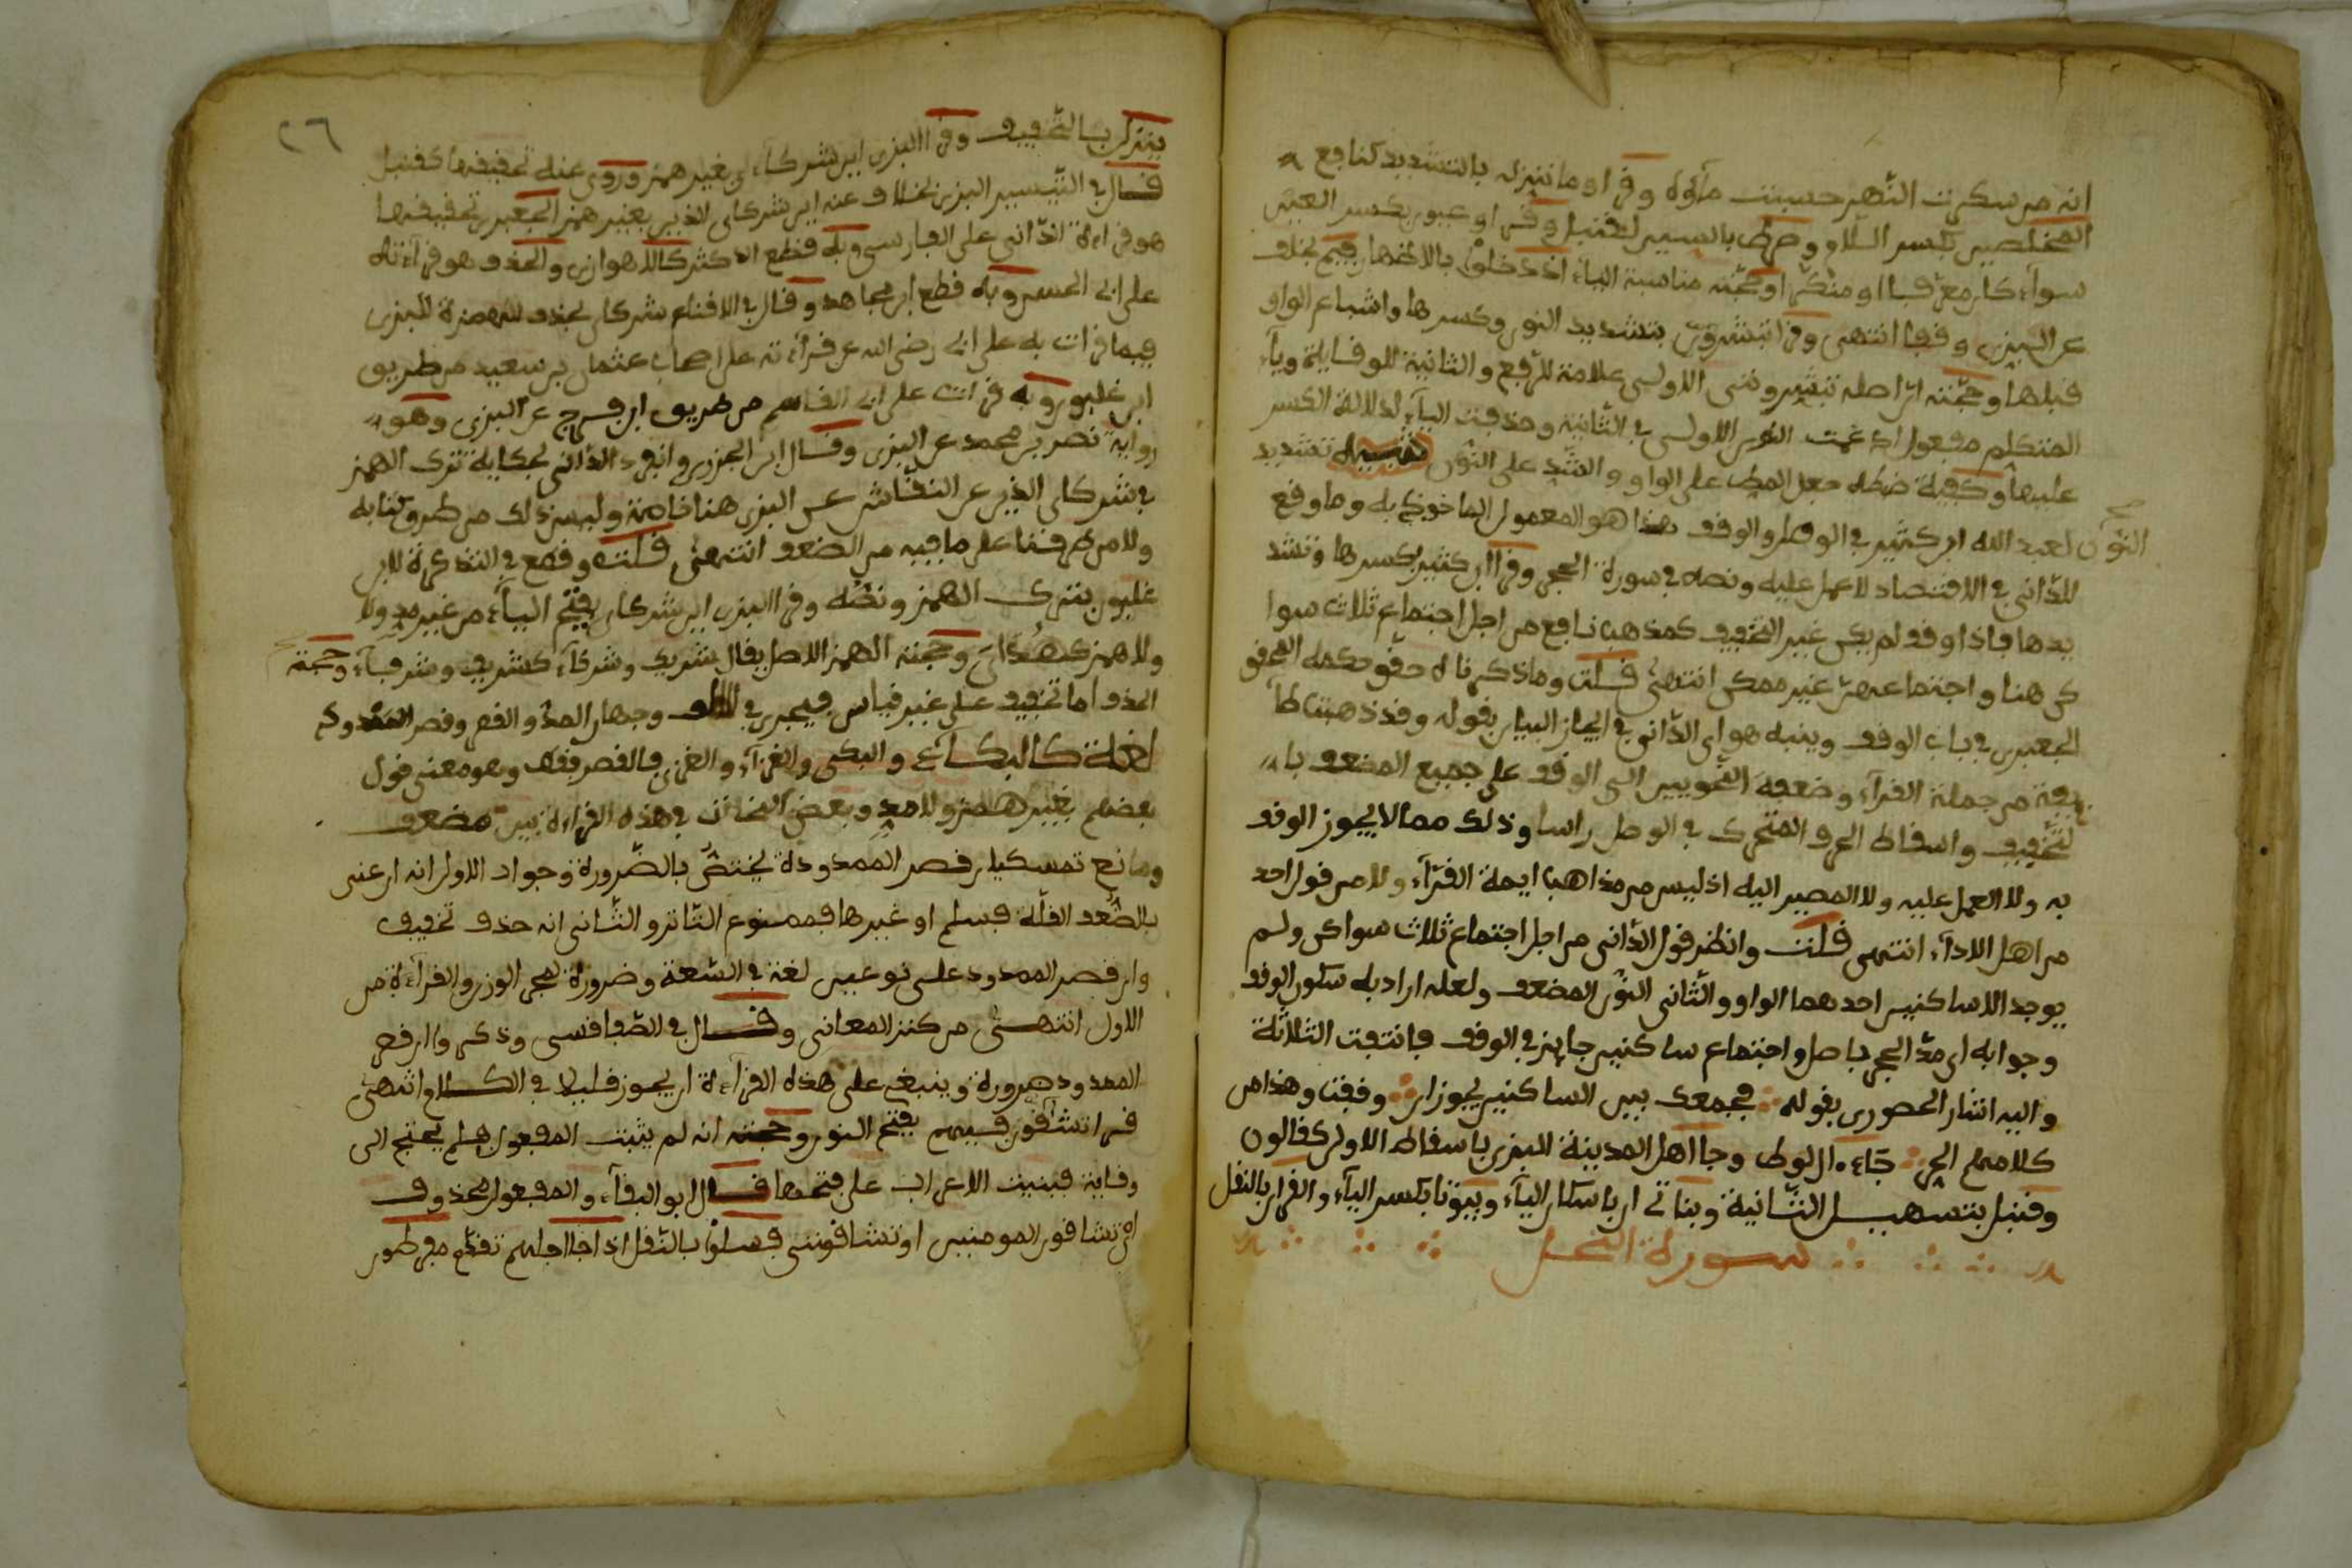 انه من سكرت النهر حبست ماؤه وقرا وما ننزله بالتشديد كنافع
المخلصين بكسر اللام وصرط بالسين لقنبل وقرا وعيون بكسر العين
سواء كان معرفا او منكرا وحجته مناسبة الياء اذ دخلوا بالاظهار بخلف
عن البزي وقفا انتهى وقرا تبشرون بتشديد النون وكسرها واشباع الواو
قبلها وحجته ان اصله تبشرونني الاولى علامة للرفع والثانية للوقاية وياء
المتكلم مفعول ادغمت النون الاولى في الثانية وحذفت الياء لدلالة الكسر
عليها وكيفية ضبطه جعل المط على الواو والشد على النون تنبيه تشديد
النون لعبد الله ابن كثير في الوصل والوقف هذا هو المعمول الماخوذ به وما وقع
للداني في الاقتصاد لا عمل عليه ونصه في سورة الحجر وقرا ابن كثير بكسرها وتشد
يدها فاذا وقف لم يكن غير التخفيف كمذهب نافع من اجل اجتماع ثلاث سوا
كن هنا واجتماعهن غير ممكن انتهى قلت وما ذكرناه حقق حكمه المحقق
الجعبري في باب الوقف وينبه هو اي الداني في ايجاز البيان بقوله وقد ذهبت طا
يفة من جملة القراء وضعفة النحويين الى الوقف على جميع المضعف با
لتخفيف واسقاط الحرف المتحرك في الوصل راسا وذلك مما لا يجوز الوقف
به ولا العمل عليه ولا المصير اليه اذ ليس من مذاهب ايمة القراء ولا من قول احد
من اهل الاداء انتهى قلت وانظر قول الداني من اجل اجتماع ثلاث سواكن ولم
يوجد الا ساكنين احدهما الواو والثاني النون المضعف ولعله اراد به سكون الوقف
وجوابه ان مد الحجر باصل واجتماع ساكنين جايز في الوقف فانتفت الثلاثة
واليه اشار الحصري بقوله فجمعك بين الساكنين يجوز ان وقفت وهذا من
كلامهم الحر جاء ال لوط وجا اهل المدينة البزي باسقاط الاولى كقالون
وقنبل بتسهيل الثانية وبناتي ان باسكان الياء وبيوتا بكسر الياء والقران بالنقل
سورة النحل
٢٦
ينزل بالتخفيف وقرا البزي اين شركاي بغير همز وروى عنه تحقيقها كقنبل
قال في التيسير البزي بخلاف عنه اين شركاي الذين بغير همز الجعبري تحقيقها
هو قراءة الداني على الفارسي وبه قطع الاكثر كالاهوازي والحذف هو قراءته
على ابي الحسن وبه قطع ابن مجاهد وقال في الاقناع شركاي بحذف الهمزة للبزي
فيما قرات به على ابي رضي الله عن قراءته على اصحاب عثمان بن سعيد من طريق
ابن غلبون وبه قرات على ابي القاسم من طريق ابن فرج عن البزي وهو
رواية نصر بن محمد عن البزي وقال ابن الجزري وانفرد الداني بحكاية ترك الهمز
في شركاي الذين عن النقاش عن البزي هنا خاصة وليس ذلك من طرق كتابه
ولا من طرقنا على ما فيه من الضعف انتهى قلت وقطع في التذكرة لابن
غلبون بترك الهمز ونصه وقرا البزي اين شركاي بفتح الياء من غير مد ولا
ولا همز كهداي وحجته الهمز الاصل يقال شريك وشركاء كشريف وشرفاء وحجة
الحذف اما تخفيف على غير قياس فيجري في الالف وجهان المد والقصر وقصر الممدود
لغة كالبكاء والبكى والغزاء والغزى فالقصر فقط وهو معنى قول
بعضهم بغير همز ولا مد وبعض النحاة في هذه القراءة بين مضعف
ومانع تمسكا بان قصر الممدودة يختص بالضرورة وجواد الاول انه ان عنى
بالضعف القلة فسلم او غيرها فممنوع التاتر والثاني انه حذف تخفيف
وان قصر الممدود على نوعين لغة في السعة وضرورة لمجر الوزن والقراءة من
الاول انتهى من كنز المعاني وقال في الصفاقسي وذكروا ان قصر
الممدود ضرورة وينبغي على هذه القراءة ان يجوز قليلا في الكلام انتهى
قرا تشاقون فيهم بفتح النون وحجته انه لم يثبت المفعول فلم يحتج الى
وقاية فبنيت الاعراب على فتحها قال ابو البقاء والمفعول محذوف
اي تشاقون المومنين او تشاقونني فسلوا بالنقل اذا جا اجلهم تقدم في طهور